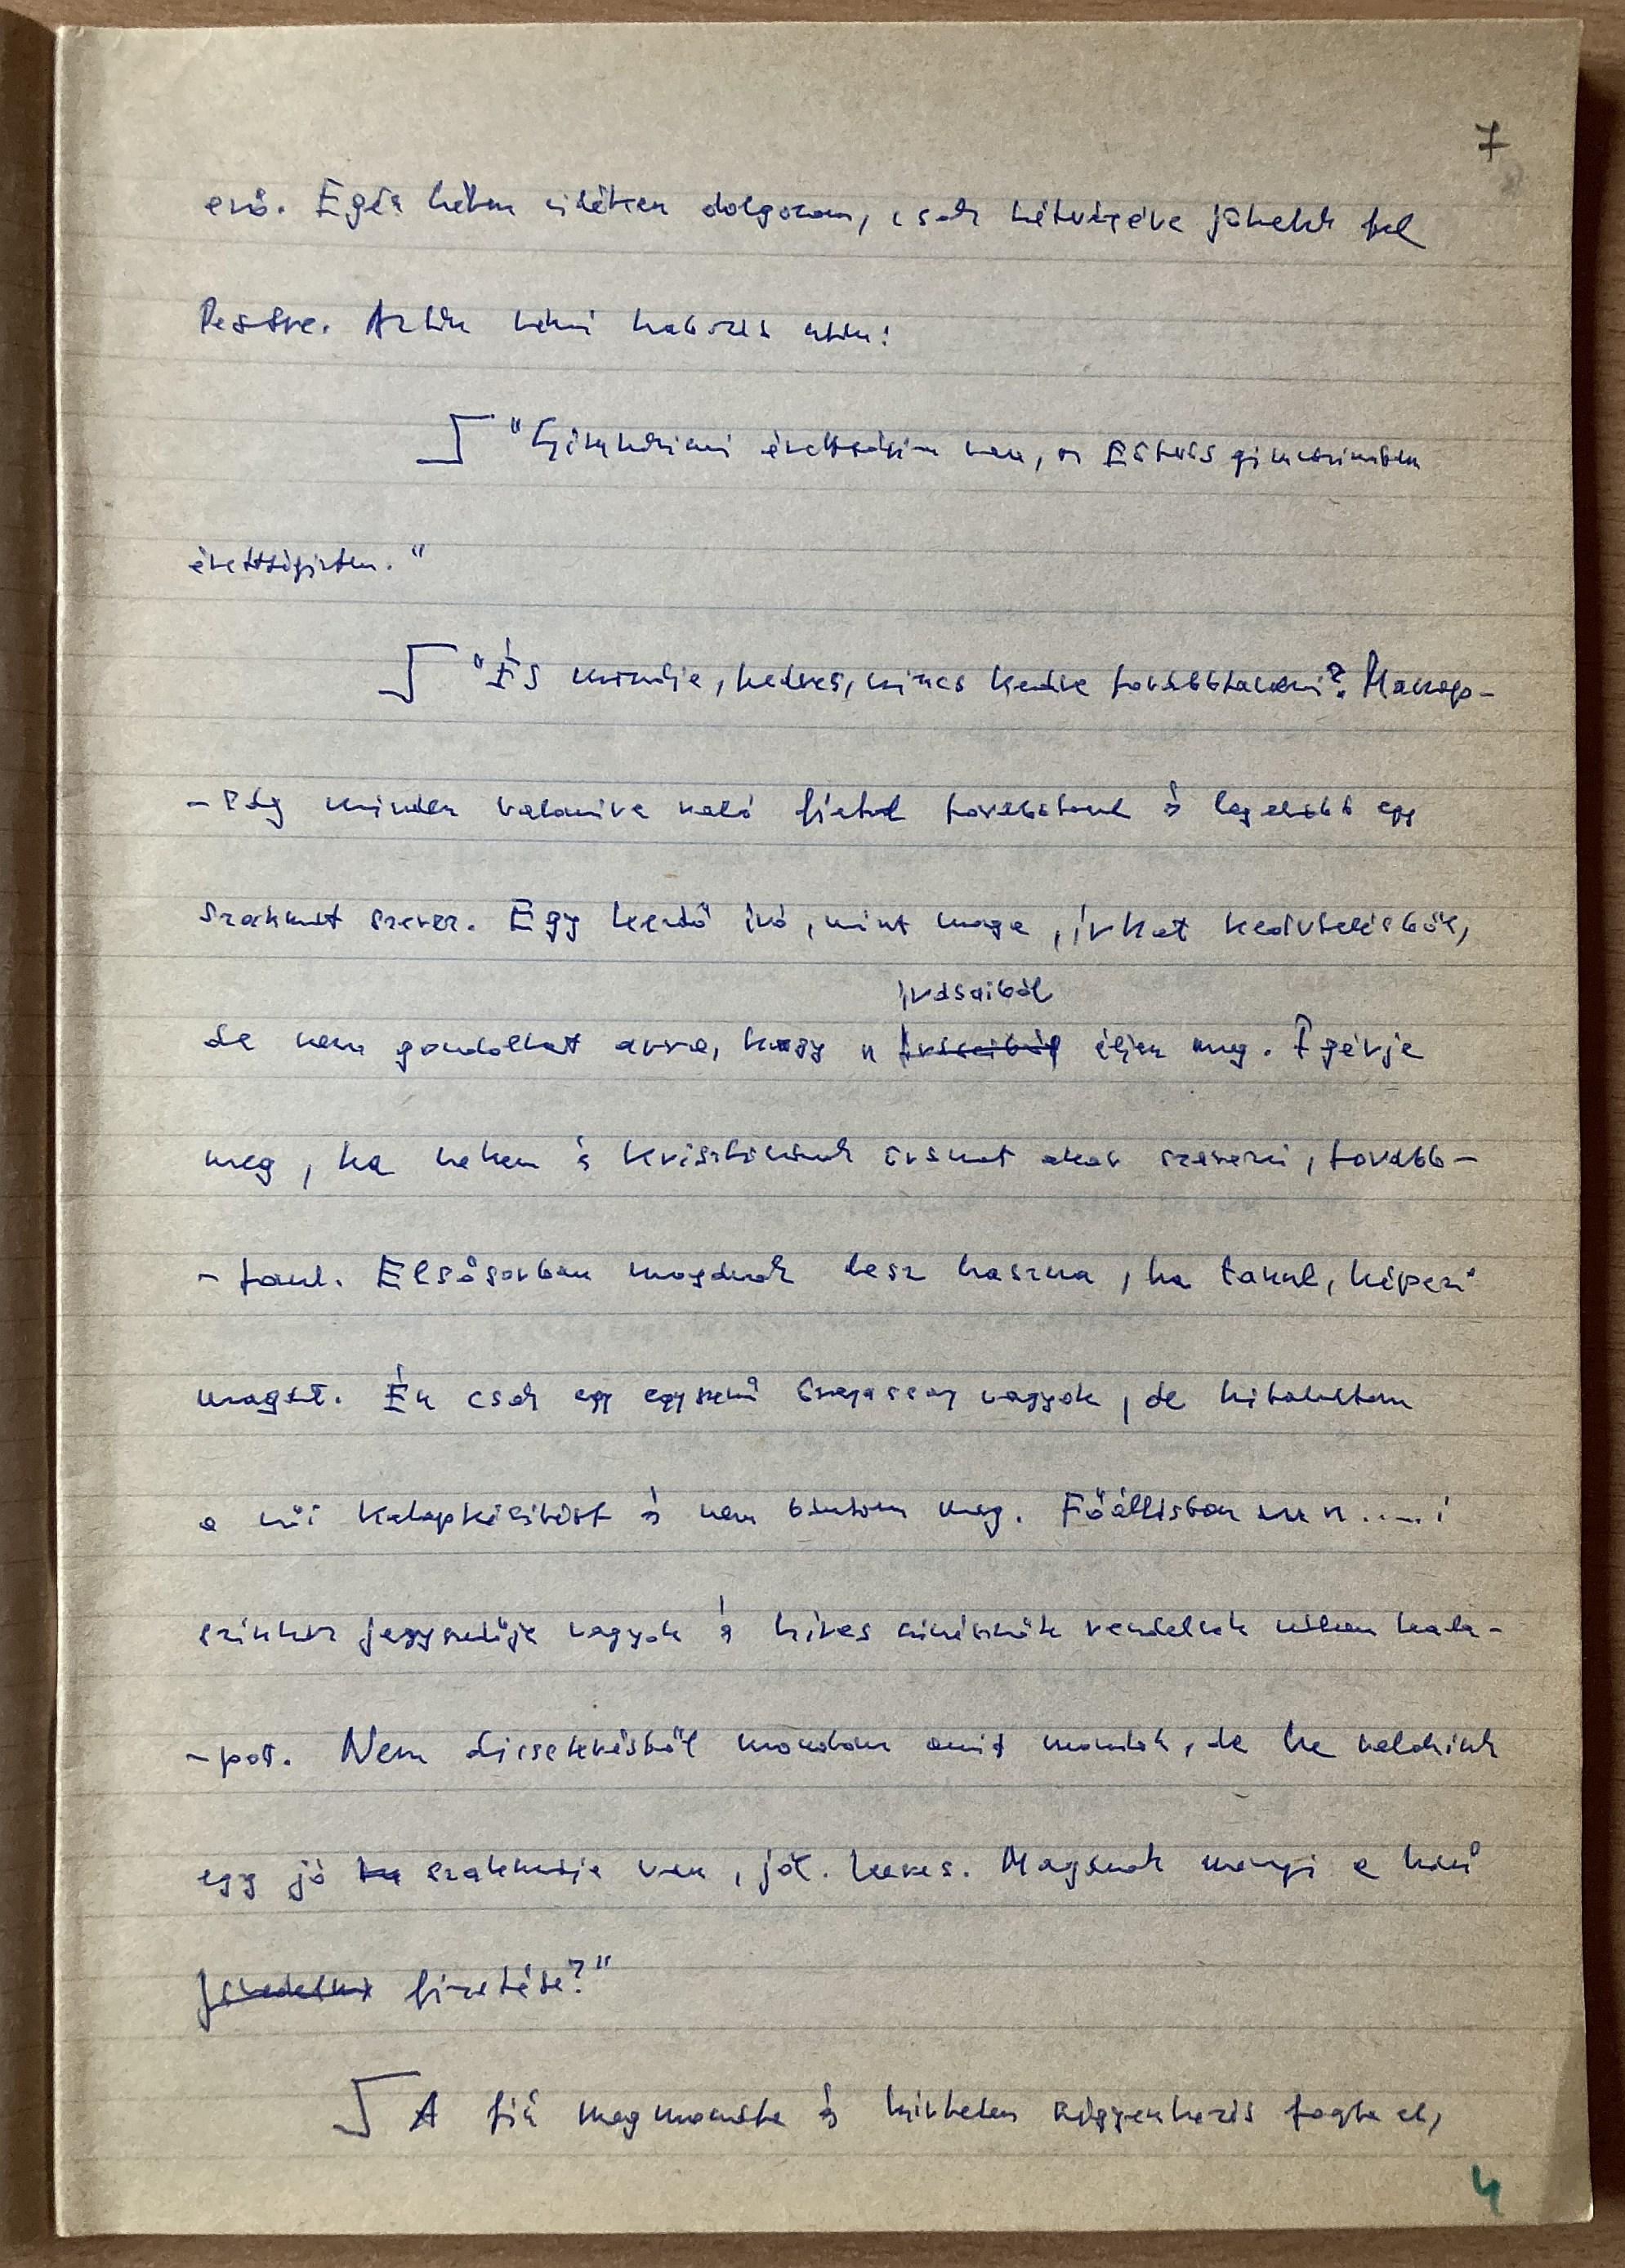 7
erő. Egész héten vidéken dolgozom, csak hétvégére jövök fel
Pestre. Aztán némi habozás után:
"Gimnáziumi érettségim van, az Eötvös gimnáziumban
érettségiztem."
"És mondja, kedves, nincs kedve továbbtanulni? Manap-
-ság minden valamire való fiatal továbbtanul és legalább egy
szakmát szerez. Egy kezdő író, mint maga, írhat kedvtelésből,
írásaiból
de nem gondolhat arra, hogy az írásaiból éljen meg. Ígérje
meg, ha nekem és Krisztinának örömet akar szerezni, tovább-
-tanul. Elsősorban magának lesz haszna, ha tanul, képezi
magát. Én csak egy egyszerű öregasszony vagyok, de kitanultam
a női kalapkészítést és nem bántam meg. Főállásban a
színház jegyszedője vagyok és híres színésznők rendelnek nálam kala-
-pot. Nem dicsekvésből mondom amit mondok, de ha valakinek
egy jó szakmája van, jól keres. Magának mennyi a havi
jövedelme fizetése?"
A fiú megmondta és hirtelen függenkezés fogta el,
4